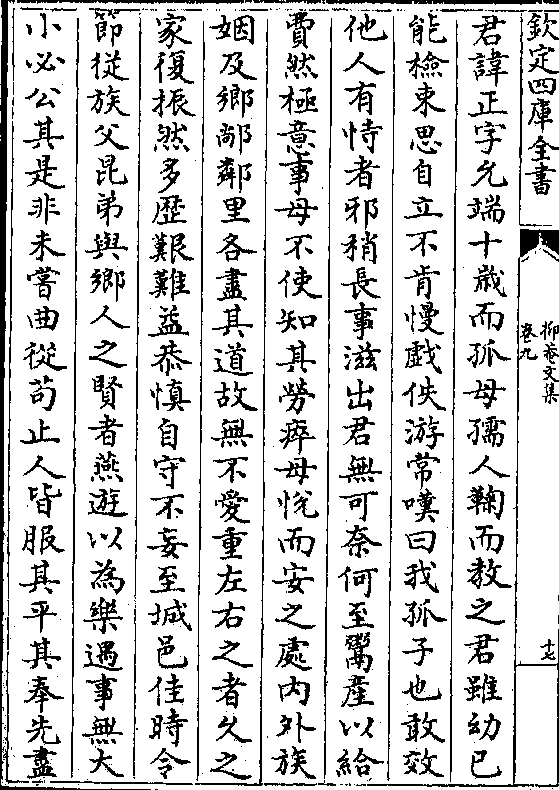 欽定四庫全書
抑菴文集
卷九
十七
君諱正字允端十歲而孤母孺人鞠而教之君雖幼已
能檢束思自立不肯慢戲佚游常嘆曰我孤子也敢效
他人有恃者邪稍長事滋出君無可奈何至鬻產以給
費然極意事母不使知其勞瘁母悅而安之處內外族
姻及鄉鄙鄰里各盡其道故無不愛重左右之者久之
家復振然多歷艱難益恭慎自守不妄至城邑佳時令
節從族父昆弟與鄉人之賢者燕遊以為樂遇事無大
小必公其是非未嘗曲從苟止人皆服其平其奉先盡